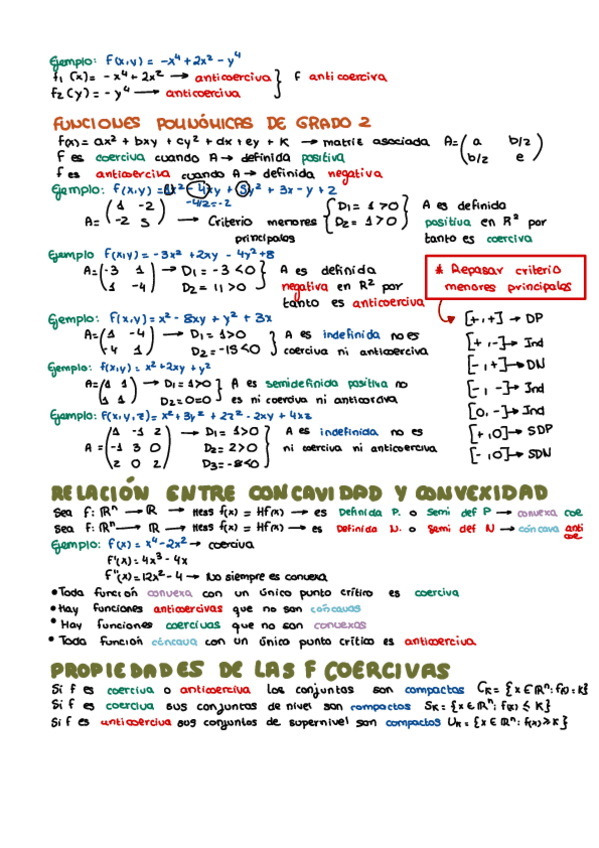 Ejemplo: f(x,y) = -x⁴ + 2x² - y⁴
f₁(x) = -x⁴ + 2x² → anticoerciva } f anticoerciva
f₂(y) = -y⁴ → anticoerciva
FUNCIONES POLINÓMICAS DE GRADO 2
f(x) = ax² + bxy + cy² + dx + ey + K → matriz asociada A = ( a b/2 )
( b/2 e )
f es coerciva cuando A → definida positiva
f es anticoerciva cuando A → definida negativa
Ejemplo: f(x,y) = 1x² - 4xy + 5y² + 3x - y + 2
-4/2 = -2
A = ( 1 -2 ) → Criterio menores { D₁ = 1 > 0 } A es definida
( -2 5 ) principales { D₂ = 1 > 0 } positiva en R² por
tanto es coerciva
Ejemplo f(x,y) = -3x² + 2xy - 4y² + 8
A = ( -3 1 ) → D₁ = -3 < 0 } A es definida
( 1 -4 ) D₂ = 11 > 0 } negativa en R² por
tanto es anticoerciva
* Repasar criterio
menores principales
[+,+] → DP
[+,-] → Ind
[-,+] → DN
[-,-] → Ind
[0,-] → Ind
[+,0] → SDP
[-,0] → SDN
Ejemplo: f(x,y) = x² - 8xy + y² + 3x
A = ( 1 -4 ) → D₁ = 1 > 0 } A es indefinida no es
( -4 1 ) D₂ = -15 < 0 } coerciva ni anticoerciva
Ejemplo: f(x,y) = x² + 2xy + y²
A = ( 1 1 ) → D₁ = 1 > 0 } A es semidefinida positiva no
( 1 1 ) D₂ = 0 = 0 } es ni coerciva ni anticoerciva
Ejemplo: f(x,y,z) = x² + 3y² + 2z² - 2xy + 4xz
( 1 -1 2 ) → D₁ = 1 > 0 } A es indefinida no es
A = ( -1 3 0 ) D₂ = 2 > 0 } ni coerciva ni anticoerciva
( 2 0 2 ) D₃ = -8 < 0 }
RELACIÓN ENTRE CONCAVIDAD Y CONVEXIDAD
Sea f: Rⁿ → R → Hess f(x) = Hf(x) → es Definida P. o Semi def P → convexa coe
Sea f: Rⁿ → R → Hess f(x) = Hf(x) → es Definida N. o Semi def N → cóncava anti coe
Ejemplo: f(x) = x⁴ - 2x² → coerciva
f'(x) = 4x³ - 4x
f''(x) = 12x² - 4 → No siempre es convexa
• Toda función convexa con un único punto crítico es coerciva
• Hay funciones anticoercivas que no son cóncavas
• Hay funciones coercivas que no son convexas
• Toda función cóncava con un único punto crítico es anticoerciva
PROPIEDADES DE LAS F COERCIVAS
Si f es coerciva o anticoerciva los conjuntos son compactos Cₖ = {x ∈ Rⁿ: f(x) = K}
Si f es coerciva sus conjuntos de nivel son compactos Sₖ = {x ∈ Rⁿ: f(x) ≤ K}
Si f es anticoerciva sus conjuntos de supernivel son compactos Uₖ = {x ∈ Rⁿ: f(x) ≥ K}